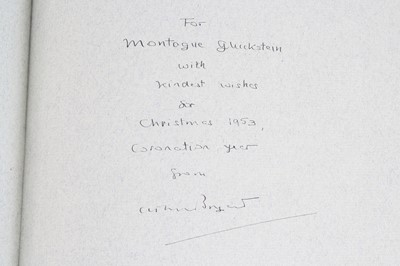 For
Montague Gluckstein
with
kindest wishes
for
Christmas 1953,
Coronation year
from
Arthur Bryant